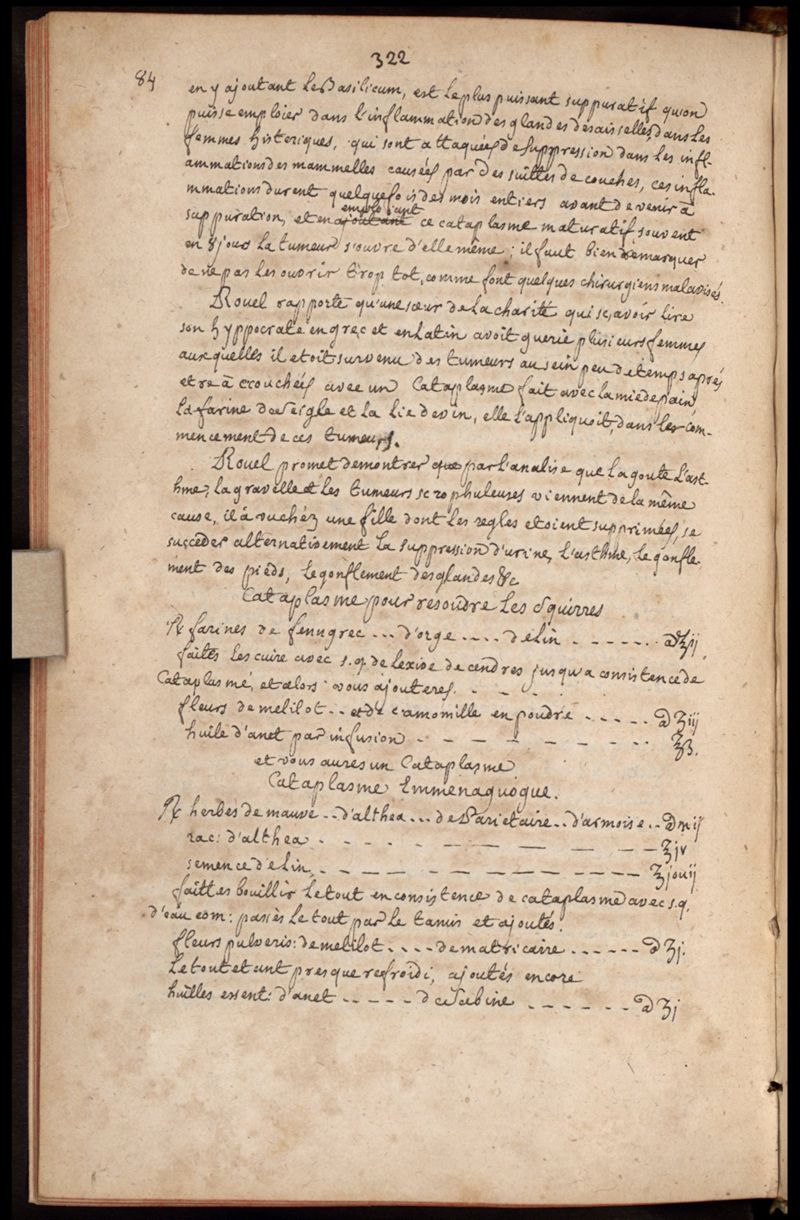 322
84
en y ajoutant le Basilicum, est le plus puissant suppuratif quon
puisse emploier dans l'inflammation des glandes des aisselles, dans les
femmes historiques, qui sont attaquées de suppression dans les infl-
ammations des mammelles causées par des suittes de couches, ces infla-
mmations durent quelquefois des mois entiers avant de venir à
suppuration, et en ajoutant emploiant ce cataplasme maturatif souvent
en 8 jours la tumeur s'ouvre d'elle même; il faut bien remarquer
de ne pas les ouvrir trop tot, comme font quelques chirurgiens malavisés.
Rouel rapporte qu'une sœur de la charité qui sçavoir lire
son hyppocrate en grec et en latin avoit guerie plusieurs femmes
auxquelles il etoit survenu des tumeurs au sein peu de temps aprés
etre accouchéés avec un Cataplasme fait avec la mie de pain
la farine de seigle et la lie de vin, elle l'appliquoit, dans les com-
mencement de ces tumeurs.
Rouel promet demontrer que par l'analise que la goute l'ast-
hme, la gravelle et les tumeurs scrophuleuses viennent de la même
cause, il à vu chéz une fille dont les regles etoient supprimées, se
succèder alternativement la suppression d'urine, l'asthme, le gonfle-
ment des pièds, le gonflement des glandes &c
Cataplasme pour resoudre les Squirres
℞ farines de fenugrec ... d'orge .... de lin - - - - - - . a ʒij
faites les cuire avec s.q. de lexive de cendres jusqu'a consistence de
Cataplasme, et alors vous ajouteres. - - -
fleurs de melilot .. et de camomille en poudre - - - - - a ʒiij
huile d'anet par infusion - - - - - - - .. ʒß.
et vous aures un Cataplasme
Cataplasme Emmenaguogue.
℞ herbes de mauve .. d'althea ... de Parietaire .. d'armoise .. a m ij
rac: d'althea . - - - - - - - - - ʒjv
semence de lin. - - - - - - - - - - ʒj ou ij
faittes bouillir le tout en consistence de cataplasme avec s.q.
d'eau com: passés le tout par le tamis et ajoutés.
fleurs pulveris: de melilot .... de matricaire - - - - - - a ʒj.
le tout etant presque refroidi, ajoutés encore
huilles essent: d'anet - - - - - de Sabine - - - - - - - a ʒj